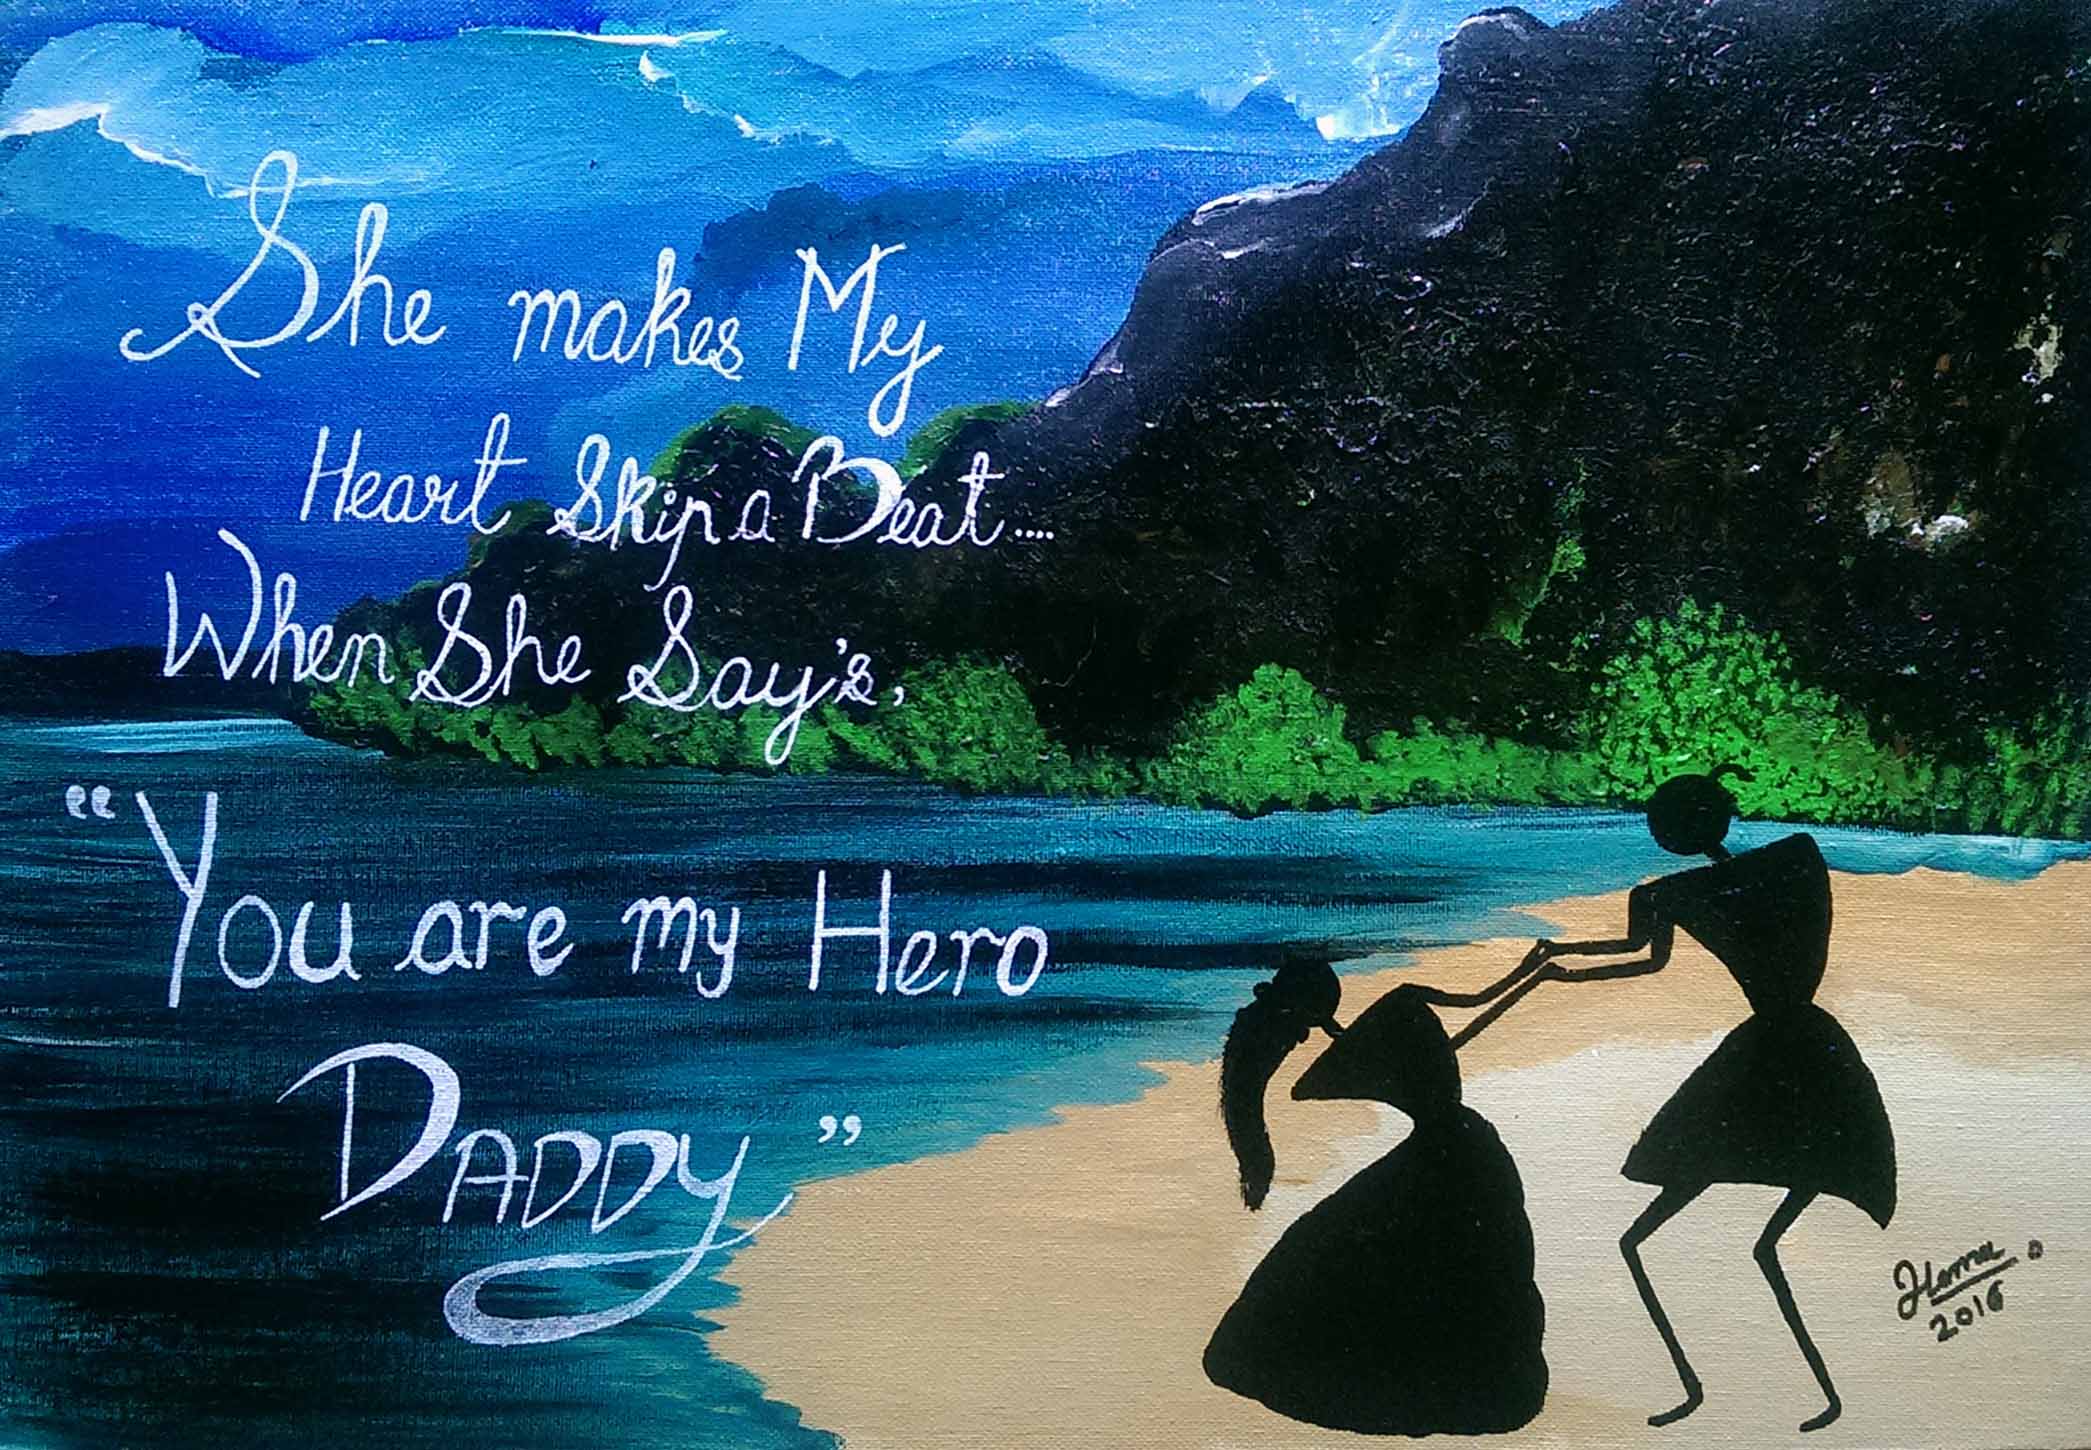 She makes My
Heart Skip a Beat....
When She Say's,
"You are my Hero
DADDY"
Hema
2016